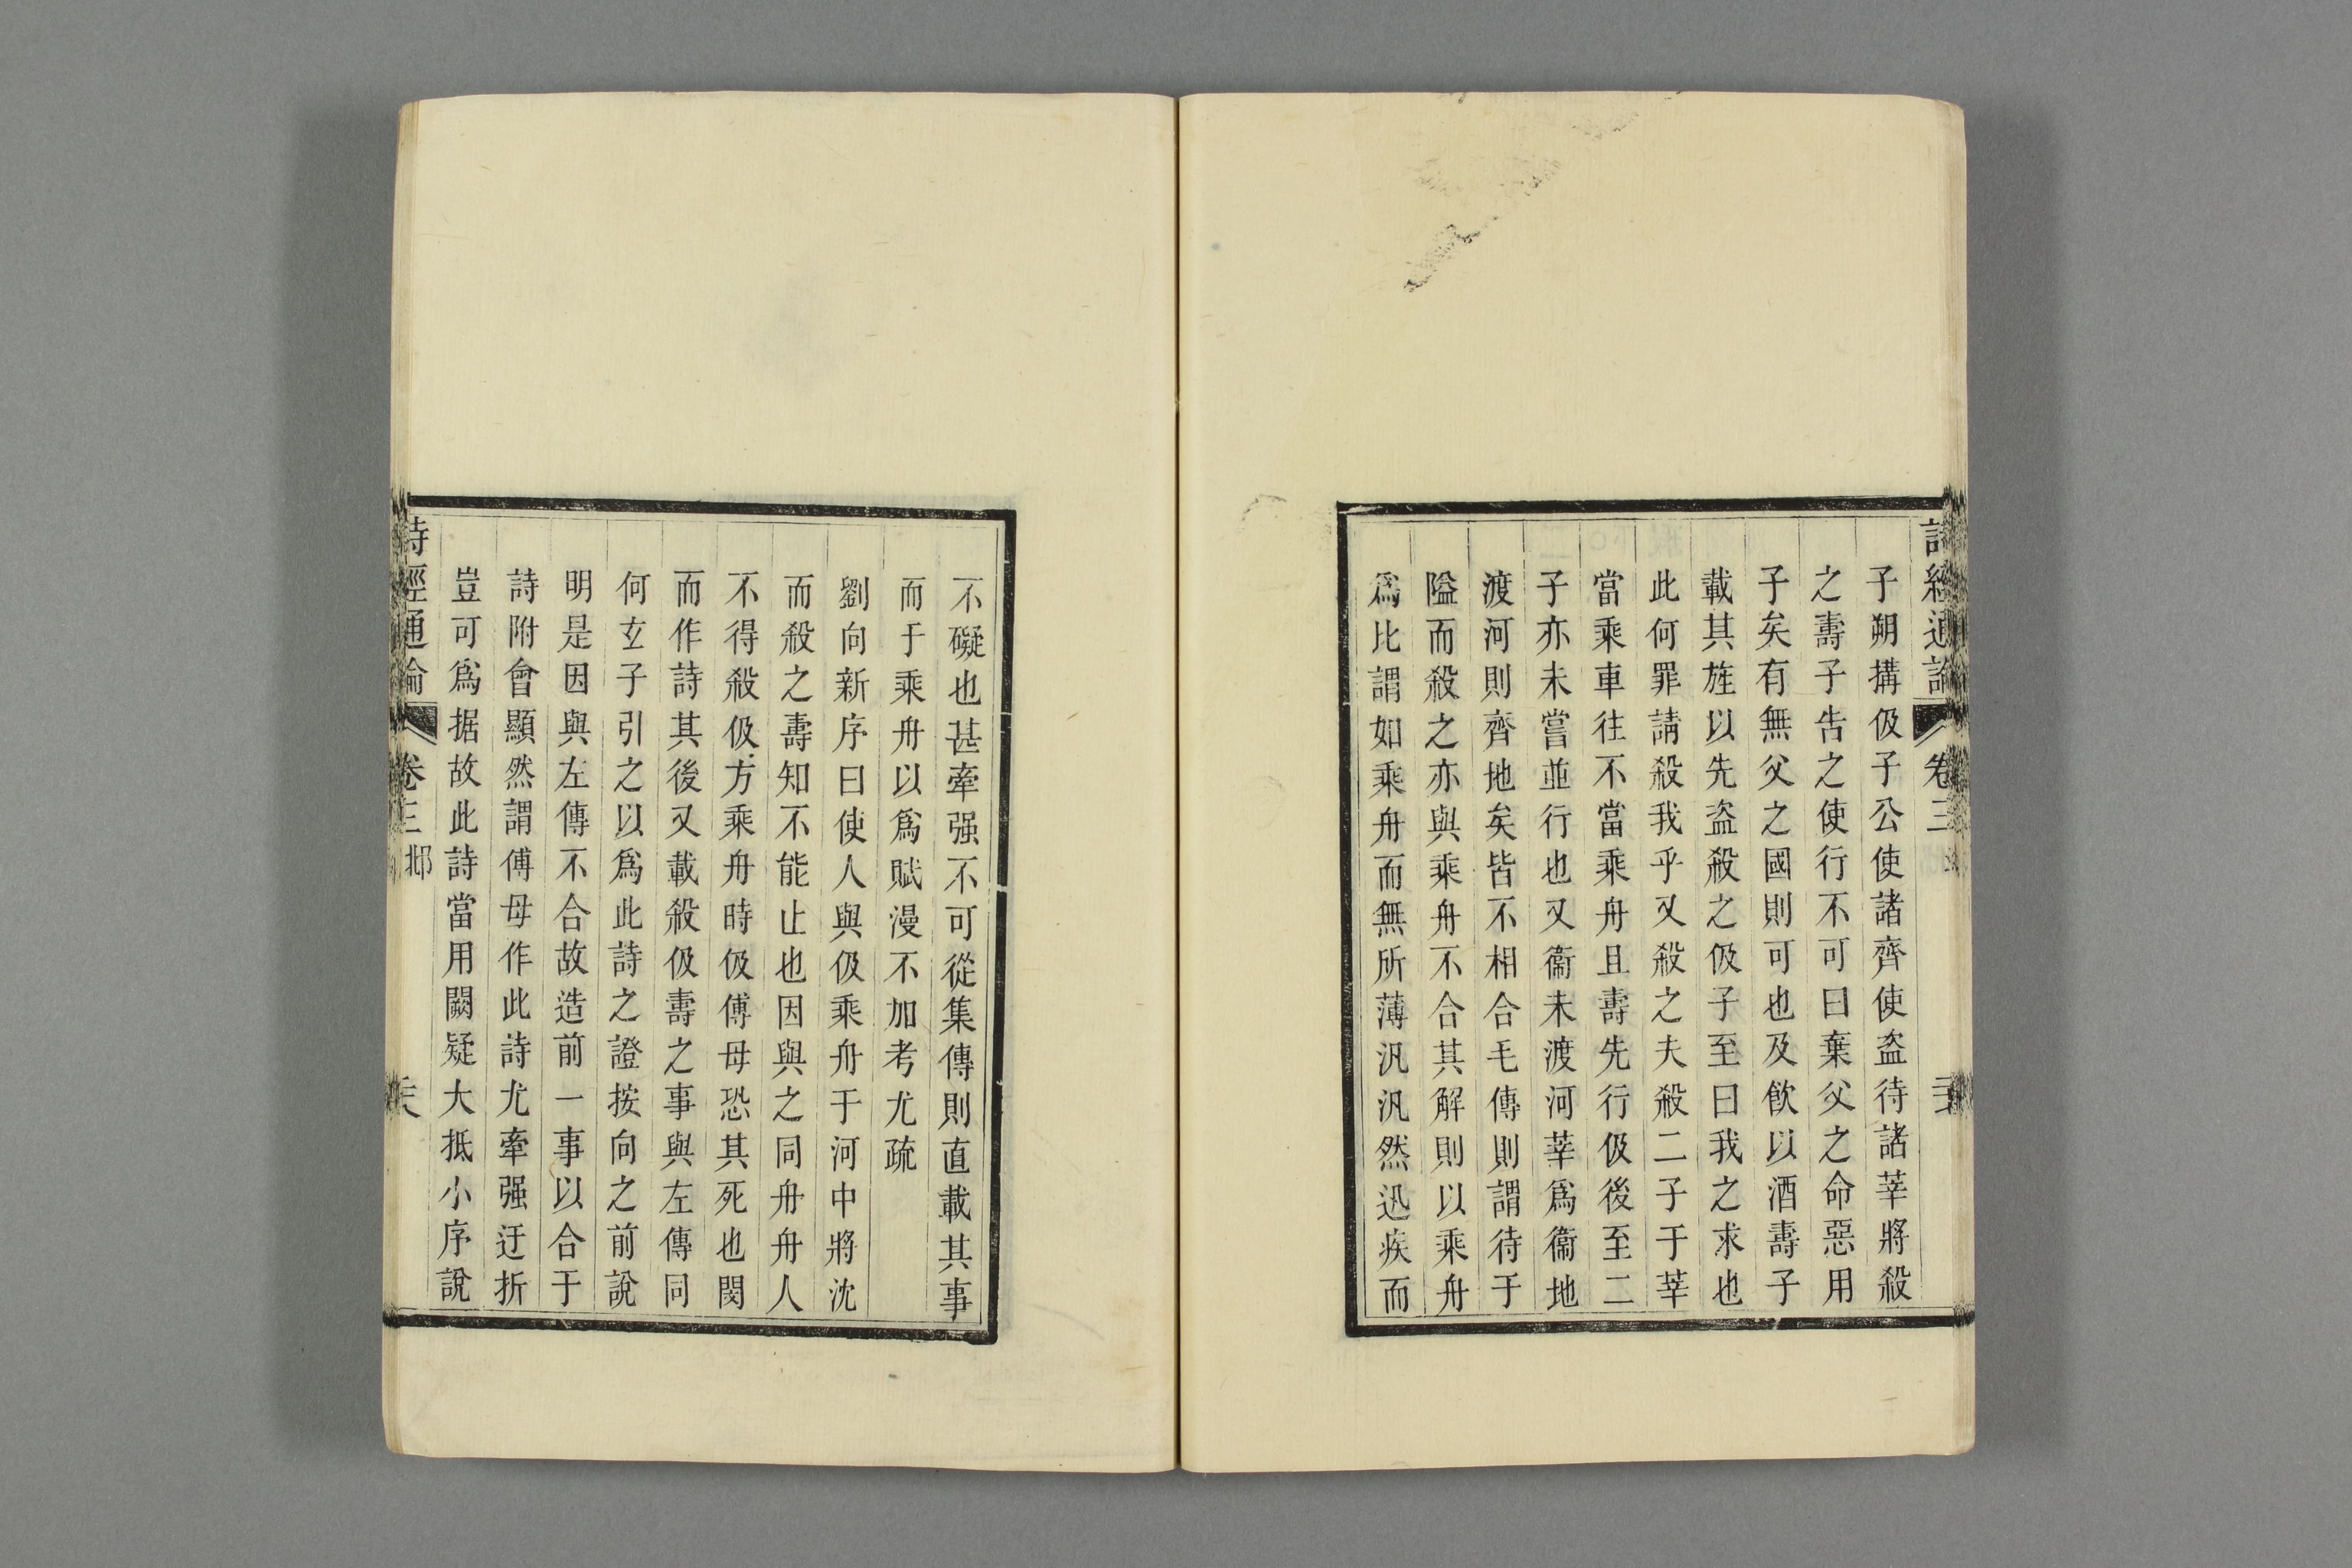 詩經通論
卷三
子朔搆伋子公使諸齊使盗待諸莘將殺
之壽子告之使行不可曰棄父之命惡用
子矣有無父之國則可也及飮以酒壽子
載其旌以先盗殺之伋子至曰我之求也
此何罪請殺我乎又殺之夫殺二子于莘
當乘車往不當乘舟且壽先行伋後至二
子亦未嘗並行也又衞未渡河莘爲衞地
渡河則齊地矣皆不相合毛傳則謂待于
隘而殺之亦與乘舟不合其解則以乘舟
爲比謂如乘舟而無所薄汎汎然迅疾而
不礙也甚牽强不可從集傳則直載其事
而于乘舟以爲賦漫不加考尤疏
劉向新序曰使人與伋乘舟于河中將沈
而殺之壽知不能止也因與之同舟舟人
不得殺伋方乘舟時伋傅母恐其死也閔
而作詩其後又載殺伋壽之事與左傳同
何玄子引之以爲此詩之證按向之前說
明是因與左傳不合故造前一事以合于
詩附會顯然謂傅母作此詩尤牽强迂折
豈可爲据故此詩當用闕疑大抵小序說
詩經通論
卷三
邶